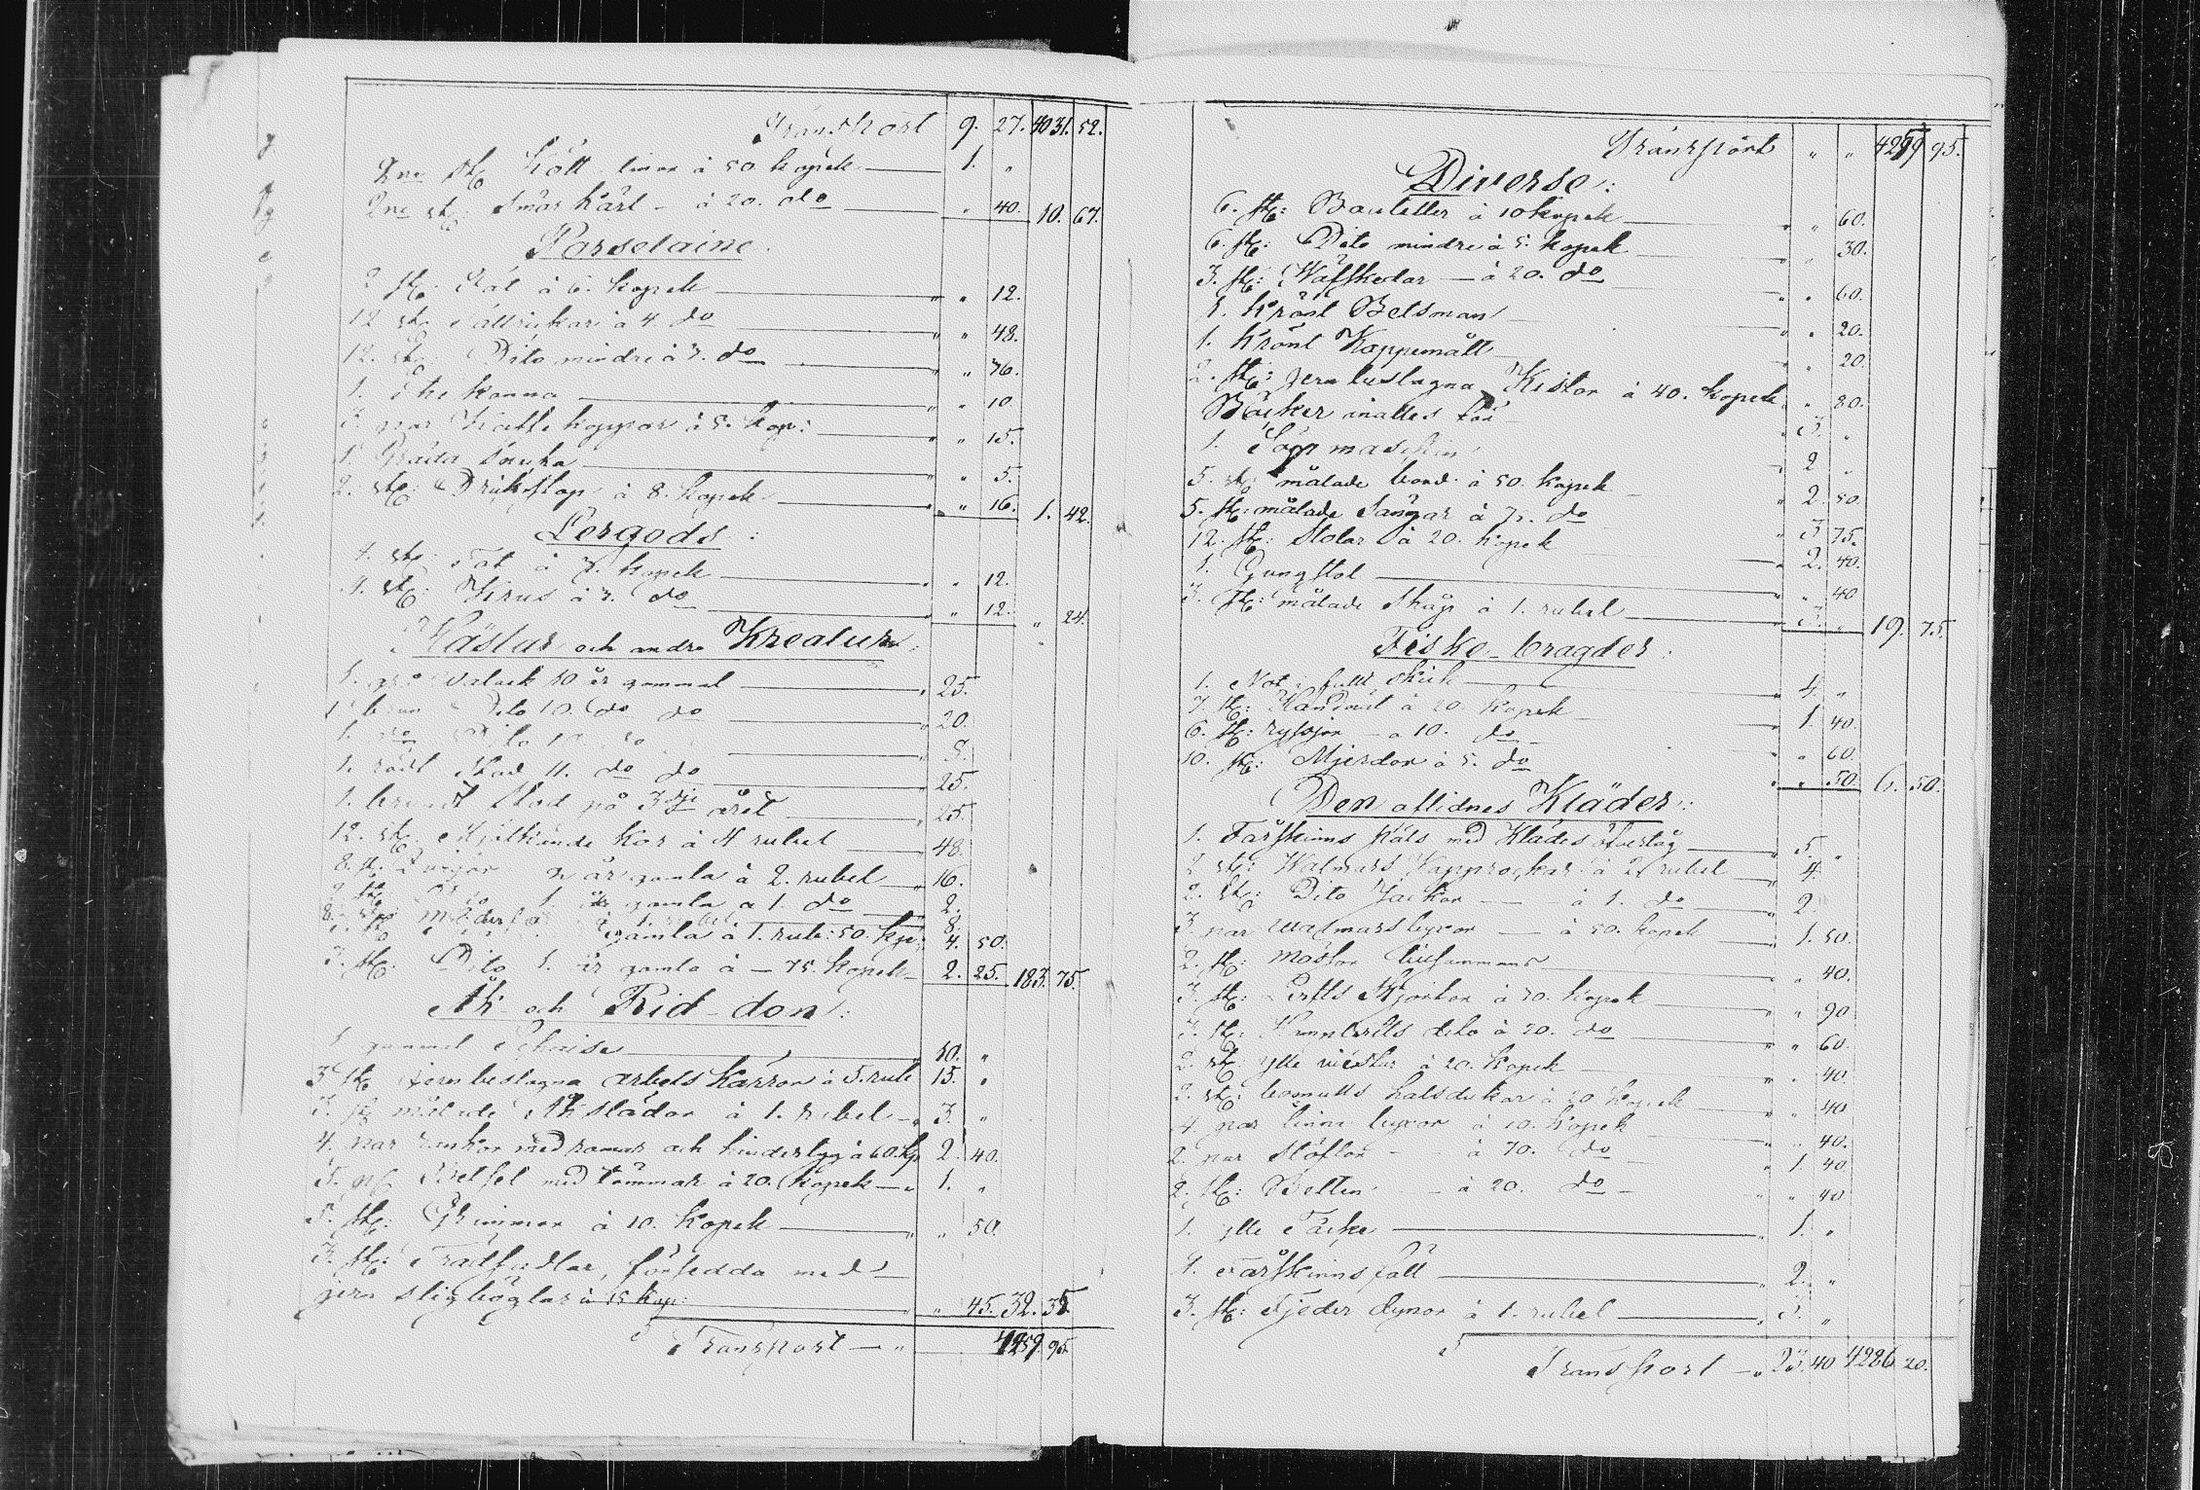 Transport 9. 27. 4031. 52.
2ne stk Kött tinor à 50 kopek 1. "
2ne stk: Smörkärl - à 20. do " 40. 10. 67.
Porselaine.
2 stk: Fat à 6. kopek " " 12.
12 stk Tallrickar à 4 do " " 48.
12. stk: Dito mindre à 3. do " " 36.
1. The kanna " " 10
3. par Kaffe koppar à 5. kop: " " 15.
1. Grädd snecka " " 5.
2. stk: Drickstop à 8. kopek " " 16. 1. 42.
Lergods:
4. stk: Fat à 3. kopek " " 12.
4. stk: Krus à 3. do " " 12. " 24.
Hästar och andra Kreatur:
1. grå Valack 10 år gammal " 25.
1 brun Dito 10. do do " 20.
1. Dito " 5.
1. rödt Stod 11. do do " 25.
1. brunt Stod på 3dje året " 25.
12. stk. Mjölkande kor à 4 rubel 48.
8. st. Qvigor 2 år gamla à 2. rubel " 16.
2. stk 1. år gamla à 1. do 2.
8. 8.
gamla à 1. rub: 50. kp: 4. 50.
3. stk: Dito 1. år gamla à - 75. kopek 2. 25. 183. 75.
Åk- och Rid-don:
1 gammal Schaise " 10. "
3 stk jern beslagna arbets kärror à 5. rub 15. "
3. stk målade Åkslädor à 1. rubel " 3. "
4. par rankor med ramar och hindertyg à 60. kp 2. 40.
5. st Betsel med tömmar à 20. kopek " 1. "
5. stk: Grimmor à 10. kopek " " 50.
3. stk: Trädsadlar, försedda med
jern stigböglar à 15 kop: " " 45. 32. 35.
Transport " 4259. 95.
Transport " " 4259 95.
Diverse:
6. stk: Bouteller à 10 kopek " " 60.
6. stk: Dito mindre à 5. kopek " " 30.
3. stk: Wäfskedar - à 20. do " " 60.
1. krönt Betsman " " 20.
1. krönt Kappemått " " 20.
2. stk: jern beslagna Kistor à 40. kopek " " 80.
Böcker inalles för " 3. "
1. maschin " 2 "
5. stk målade bord à 50. kopek " 2. 50.
5. stk: målade Sängar à 75. do " 3 75.
12. stk: Stolar à 20. kopek " 2. 40.
1. Gungstol " " 40
3. stk: målade Skåp à 1. rubel " 3. " 19. 75.
Fiske-bragder:
1. Not i fullt skick " 4. "
7 stk: à 20. kopek " 1. 40.
6. stk: ryssjor - à 10. do " " 60.
10. stk: Mjerdor à 5. do " " 50. 6. 50.
Den aflidnes Kläder:
1. Fårskinns päls med klädes öfvertåg " 5. "
2 stk: Walmars Kapprockar à 2 rubel " 4.
2. stk: Dito Jackor à 1. do " 2.
3 par Walmars byxor à 50. kopek " 1. 50.
2. st: mössor tilsammans " " 40.
3. stk: Lerfts Skjortor à 30. kopek " " 90
3. stk: dito à 20. do " " 60.
2. stk ylle västar à 20. kopek " " 40.
2. stk: bomulls halsdukar à 20 kopek " " 40
4. par linne byxor à 10. kopek " " 40.
2. par Stöflor à 70. do " 1. 40.
2. stk: Belten à 20. do " " 40
1. ylle Täcke " 1. "
1. Fårskinns fäll " 2. "
3. stk: Fjeder dynor à 1. rubel " 3. "
Transport " 23. 40 4286 20.